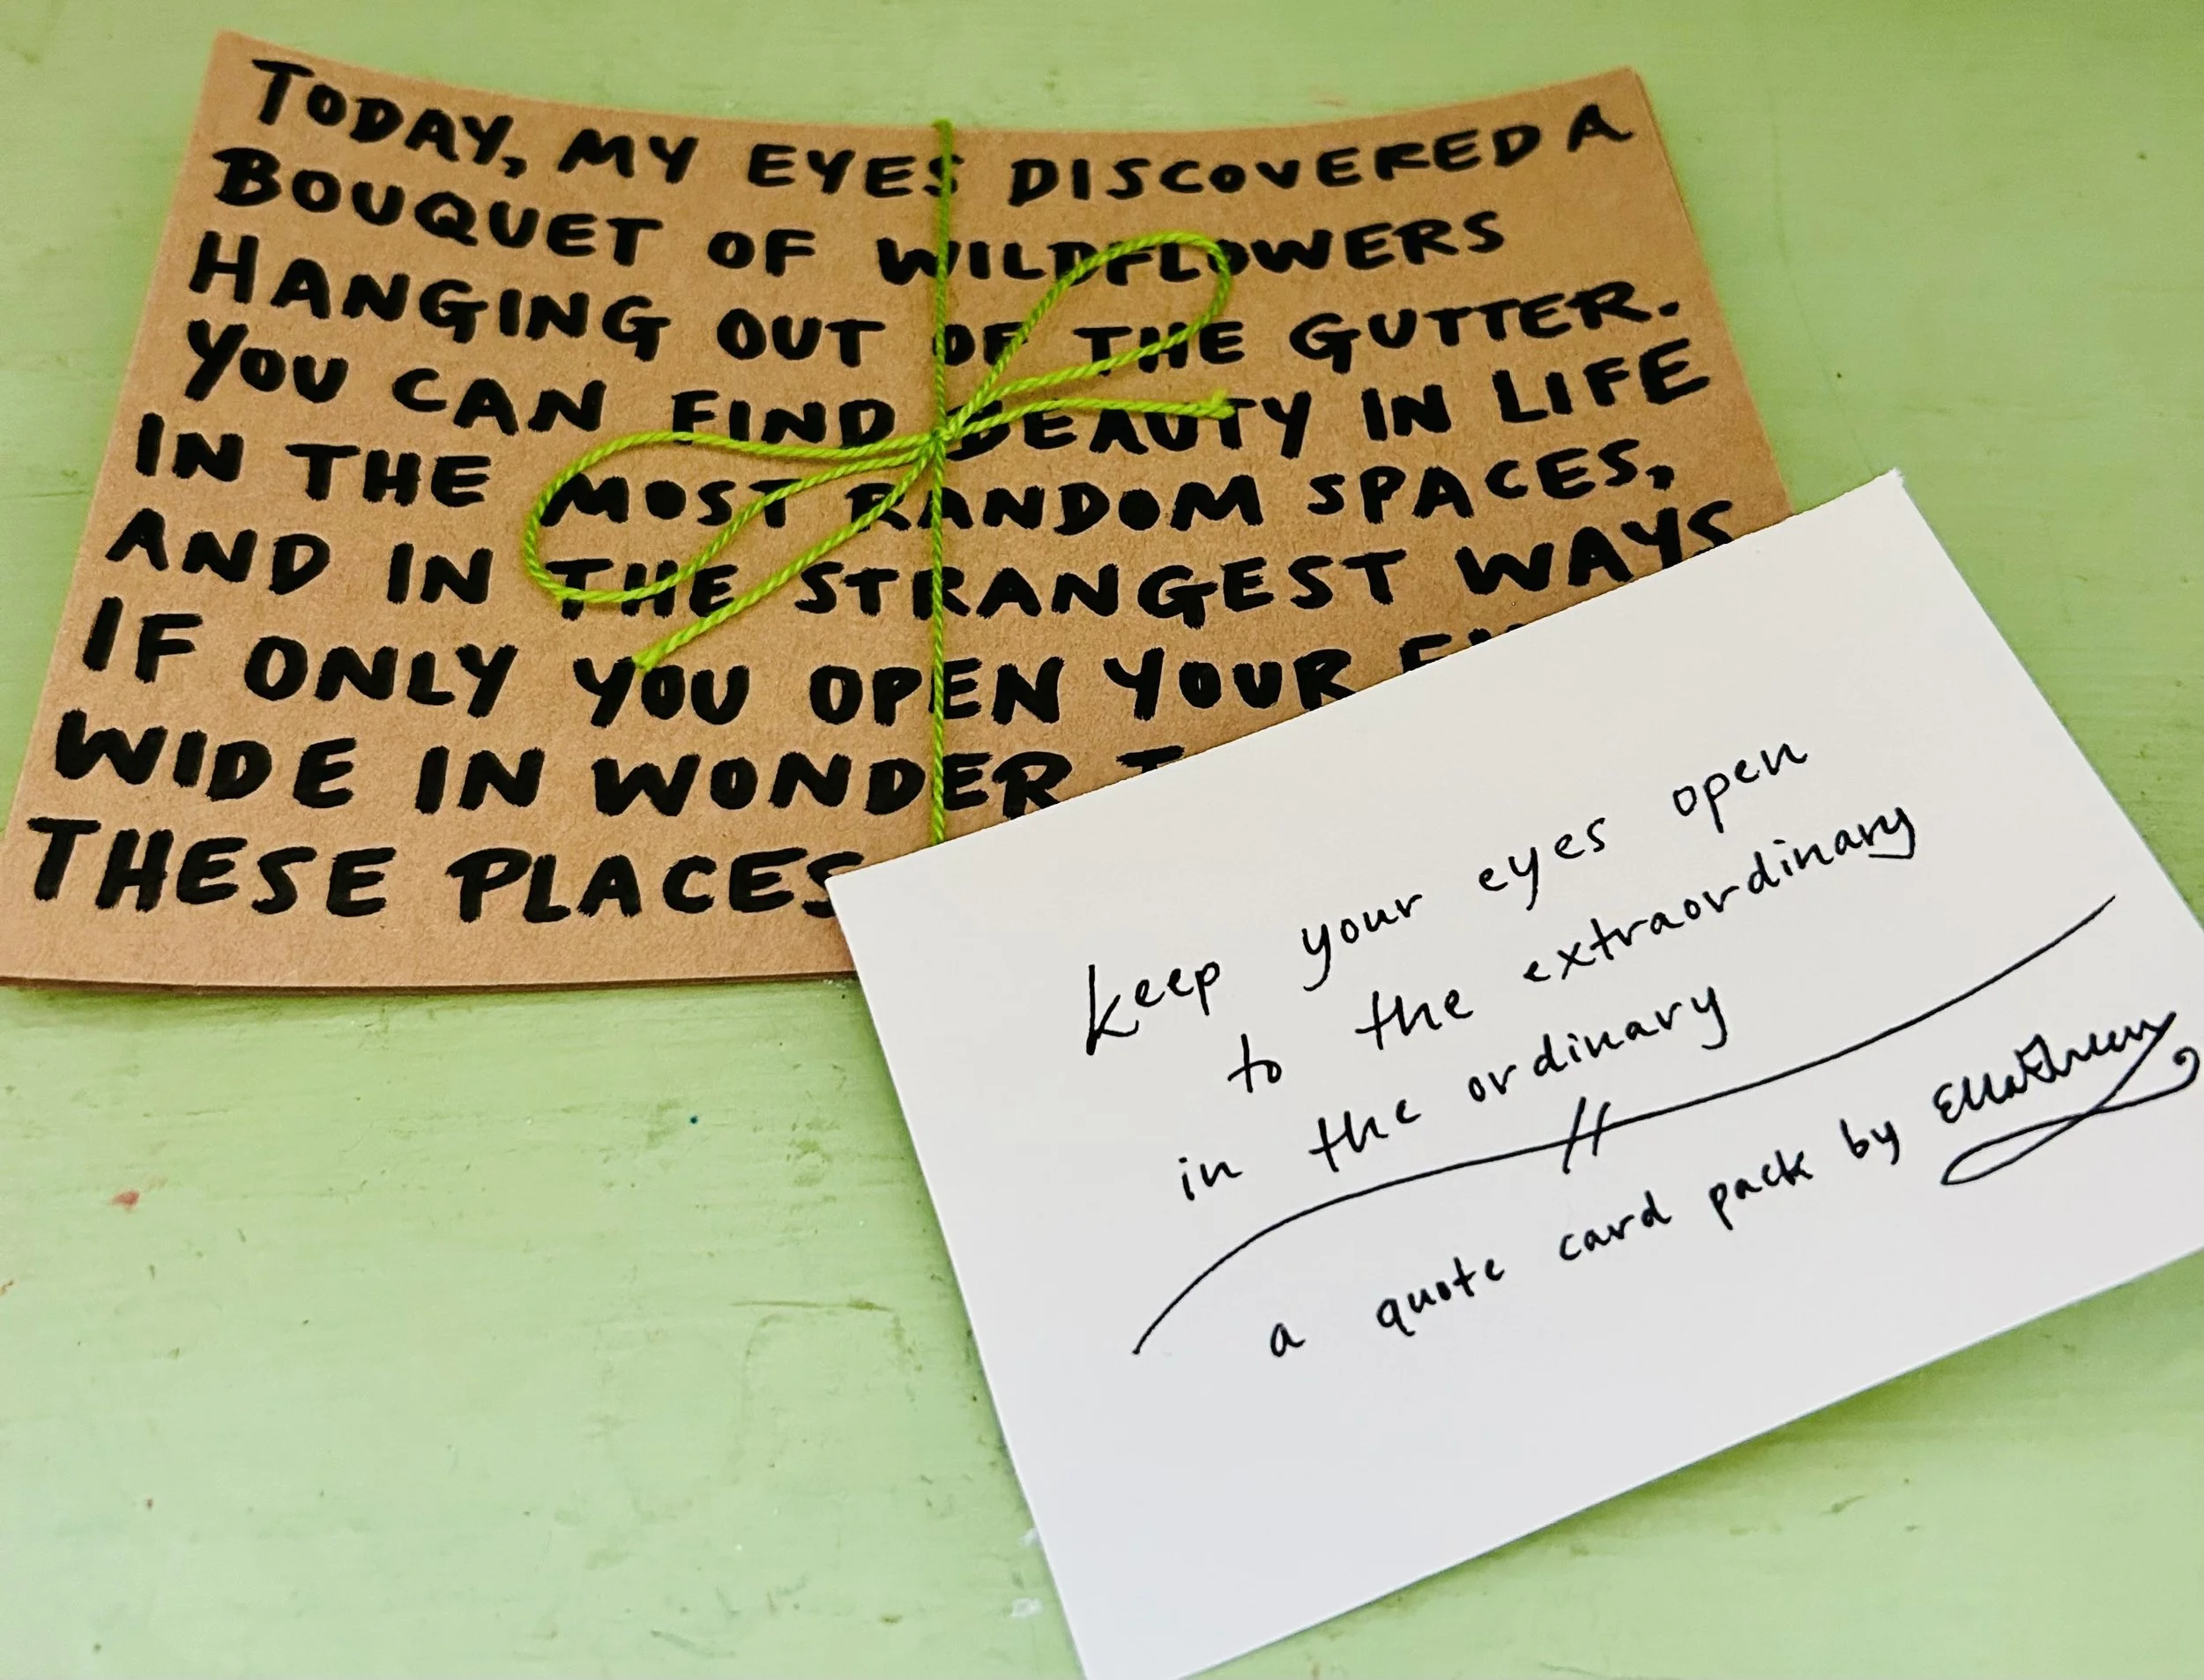 TODAY, MY EYES DISCOVERED A
BOUQUET OF WILDFLOWERS
HANGING OUT OF THE GUTTER.
YOU CAN FIND BEAUTY IN LIFE
IN THE MOST RANDOM SPACES,
AND IN THE STRANGEST WAYS
IF ONLY YOU OPEN YOUR
WIDE IN WONDER
THESE PLACES
keep your eyes open
to the extraordinary
in the ordinary
a quote card pack by